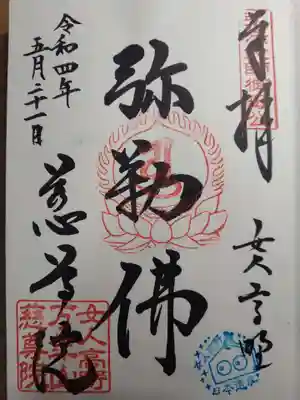 奉拝
女人高野
弥勒佛
慈尊院
令和四年
五月二十一日
女人高野
万年山
慈尊院
日本遺産